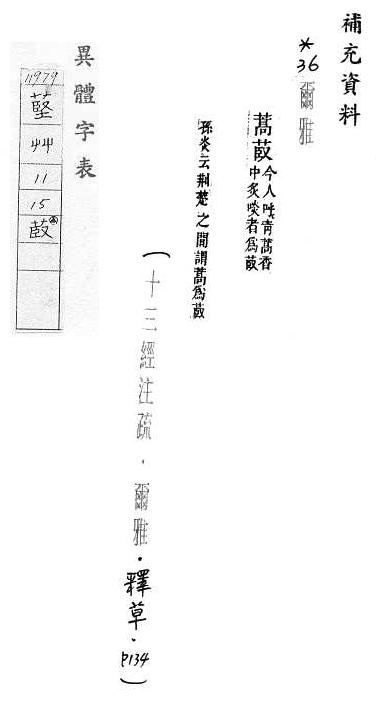 補充資料
*36
爾雅
蒿菣
今人呼青蒿香
中炙啖者為菣
孫炎云荆楚之間謂蒿為菣
(十三經注疏・爾雅・釋草・P134)
異體字表
11979
艸
11
15
菣